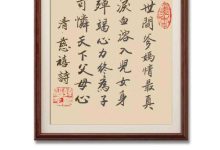 世間爹媽情最真
淚血溶入兒女身
殫竭心力終為子
可憐天下父母心
清慈禧詩